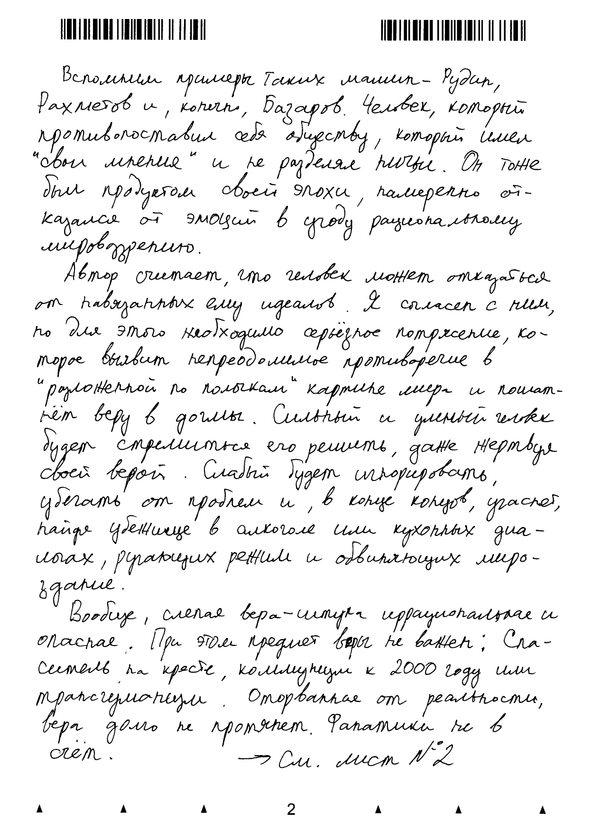 Вспомним примеры таких машин - Рудин,
Рахметов и, конечно, Базаров. Человек, который
противопоставил себя обществу, который имел
"свои мнения" и не разделял ничьи. Он тоже
был продуктом своей эпохи, намеренно от-
казался от эмоций в угоду рациональному
мировоззрению.
Автор считает, что человек может отказаться
от навязанных ему идеалов. Я согласен с ним,
но для этого необходимо серьёзное потрясение, ко-
торое выявит непреодомимое противоречие в
"разложенной по полочкам" картине мира и пошат-
нёт веру в догмы. Сильный и умный человек
будет стремиться его решить, даже жертвуя
своей верой. Слабый будет игнорировать,
убегать от проблем и, в конце концов, угаснет,
найдя убежище в алкоголе или кухонных диа-
логах, ругающих режим и обвиняющих миро-
здание.
Вообще, слепая вера - штука иррациональная и
опасная. При этом предмет веры не важен: Спа-
ситель на кресте, коммунизм к 2000 году или
трансгуманизм. Оторванная от реальности,
вера долго не протянет. Фанатики не в
счёт.
→ См. лист №2
2